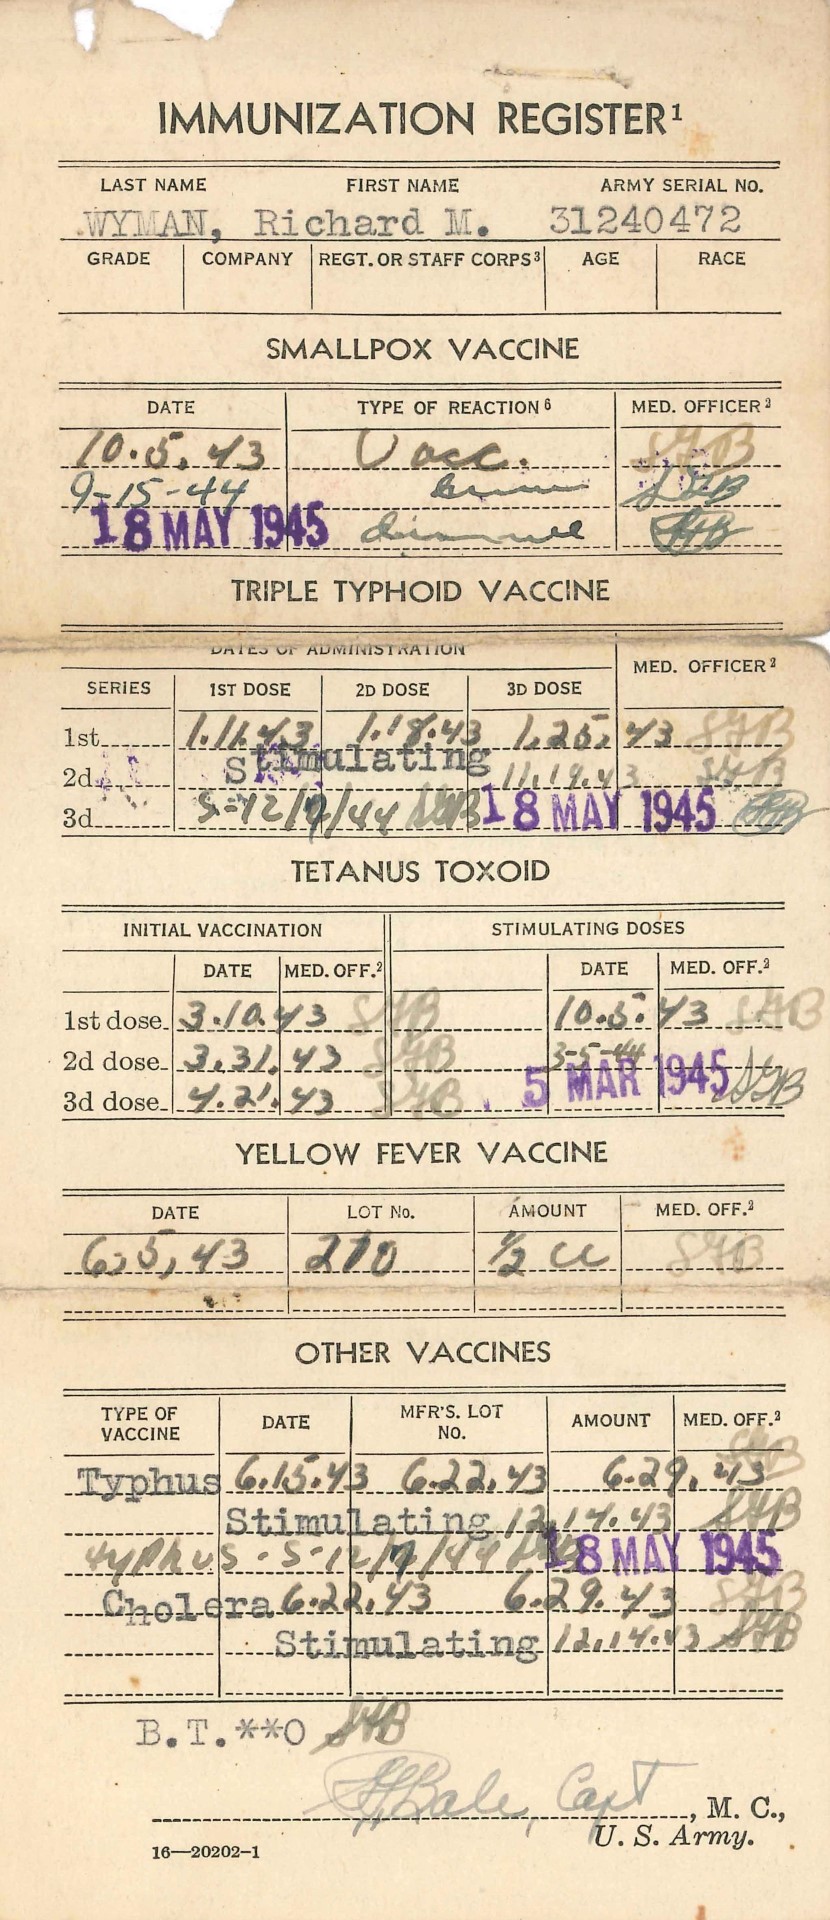 IMMUNIZATION REGISTER¹
LAST NAME FIRST NAME ARMY SERIAL NO.
WYMAN, Richard M. 31240472
GRADE COMPANY REGT. OR STAFF CORPS³ AGE RACE
SMALLPOX VACCINE
DATE TYPE OF REACTION⁶ MED. OFFICER²
10.5.43 Vacc. SGB
9-15-44 SGB
18 MAY 1945 SGB
TRIPLE TYPHOID VACCINE
DATES OF ADMINISTRATION
MED. OFFICER²
SERIES 1ST DOSE 2D DOSE 3D DOSE
1st 1.11.43 1.18.43 1.25.43 SGB
2d Stimulating 11.19.43 SGB
3d S-12/7/44 SGB 18 MAY 1945 SGB
TETANUS TOXOID
INITIAL VACCINATION STIMULATING DOSES
DATE MED. OFF.² DATE MED. OFF.²
1st dose 3.10.43 SGB 10.5.43 SGB
2d dose 3.31.43 SGB 3-5-44
3d dose 4.21.43 SGB 5 MAR 1945 SGB
YELLOW FEVER VACCINE
DATE LOT No. AMOUNT MED. OFF.²
6,5,43 270 ½ cc SGB
OTHER VACCINES
TYPE OF VACCINE DATE MFR'S. LOT NO. AMOUNT MED. OFF.²
Typhus 6.15.43 6.22.43 6.29.43 SGB
Stimulating 12.14.43 SGB
Typhus-S-12/7/44 18 MAY 1945
Cholera 6.22.43 6.29.43 SGB
Stimulating 12.14.43 SGB
B.T.**O SGB
Bale, Capt, M. C.,
U. S. Army.
16—20202-1